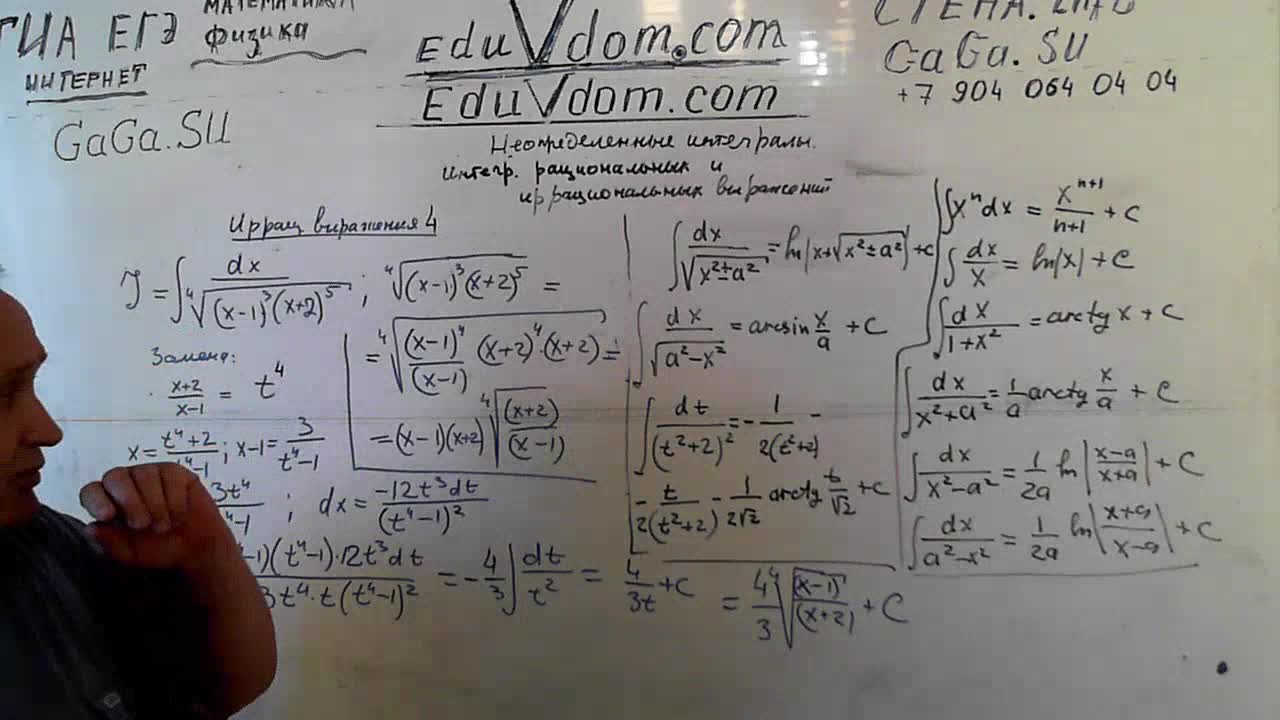 ГИА ЕГЭ
МАТЕМАТИКА
физика
ИНТЕРНЕТ
GaGa.SU
EduVdom.com
EduVdom.com
GaGa.SU
+7 904 064 04 04
Неопределенные интегралы.
интегр. рациональных и
иррациональных выражений
Иррац выражения 4
J = ∫ dx / ⁴√((x-1)³(x+2)⁵) ; ⁴√((x-1)³(x+2)⁵) =
= ⁴√((x-1)⁴/(x-1) (x+2)⁴·(x+2)) =
= (x-1)(x+2) ⁴√((x+2)/(x-1))
Замена:
(x+2)/(x-1) = t⁴
x = (t⁴+2)/(t⁴-1) ; x-1 = 3/(t⁴-1)
3t⁴ ; dx = -12t³dt/(t⁴-1)²
-1)(t⁴-1)·12t³dt / 3t⁴·t(t⁴-1)² = -4/3 ∫ dt/t² = 4/(3t) + C
= 4/3 ⁴√((x-1)/(x+2)) + C
∫ dx/√(x²±a²) = ln|x+√(x²±a²)| + C
∫ dx/√(a²-x²) = arcsin x/a + C
∫ dt/(t²+2)² = - 1/2(t²+2) -
- t/2(t²+2) - 1/2√2 arctg t/√2 + C
∫ xⁿdx = xⁿ⁺¹/(n+1) + C
∫ dx/x = ln|x| + C
∫ dx/(1+x²) = arctg x + C
∫ dx/(x²+a²) = 1/a arctg x/a + C
∫ dx/(x²-a²) = 1/2a ln|(x-a)/(x+a)| + C
∫ dx/(a²-x²) = 1/2a ln|(x+a)/(x-a)| + C